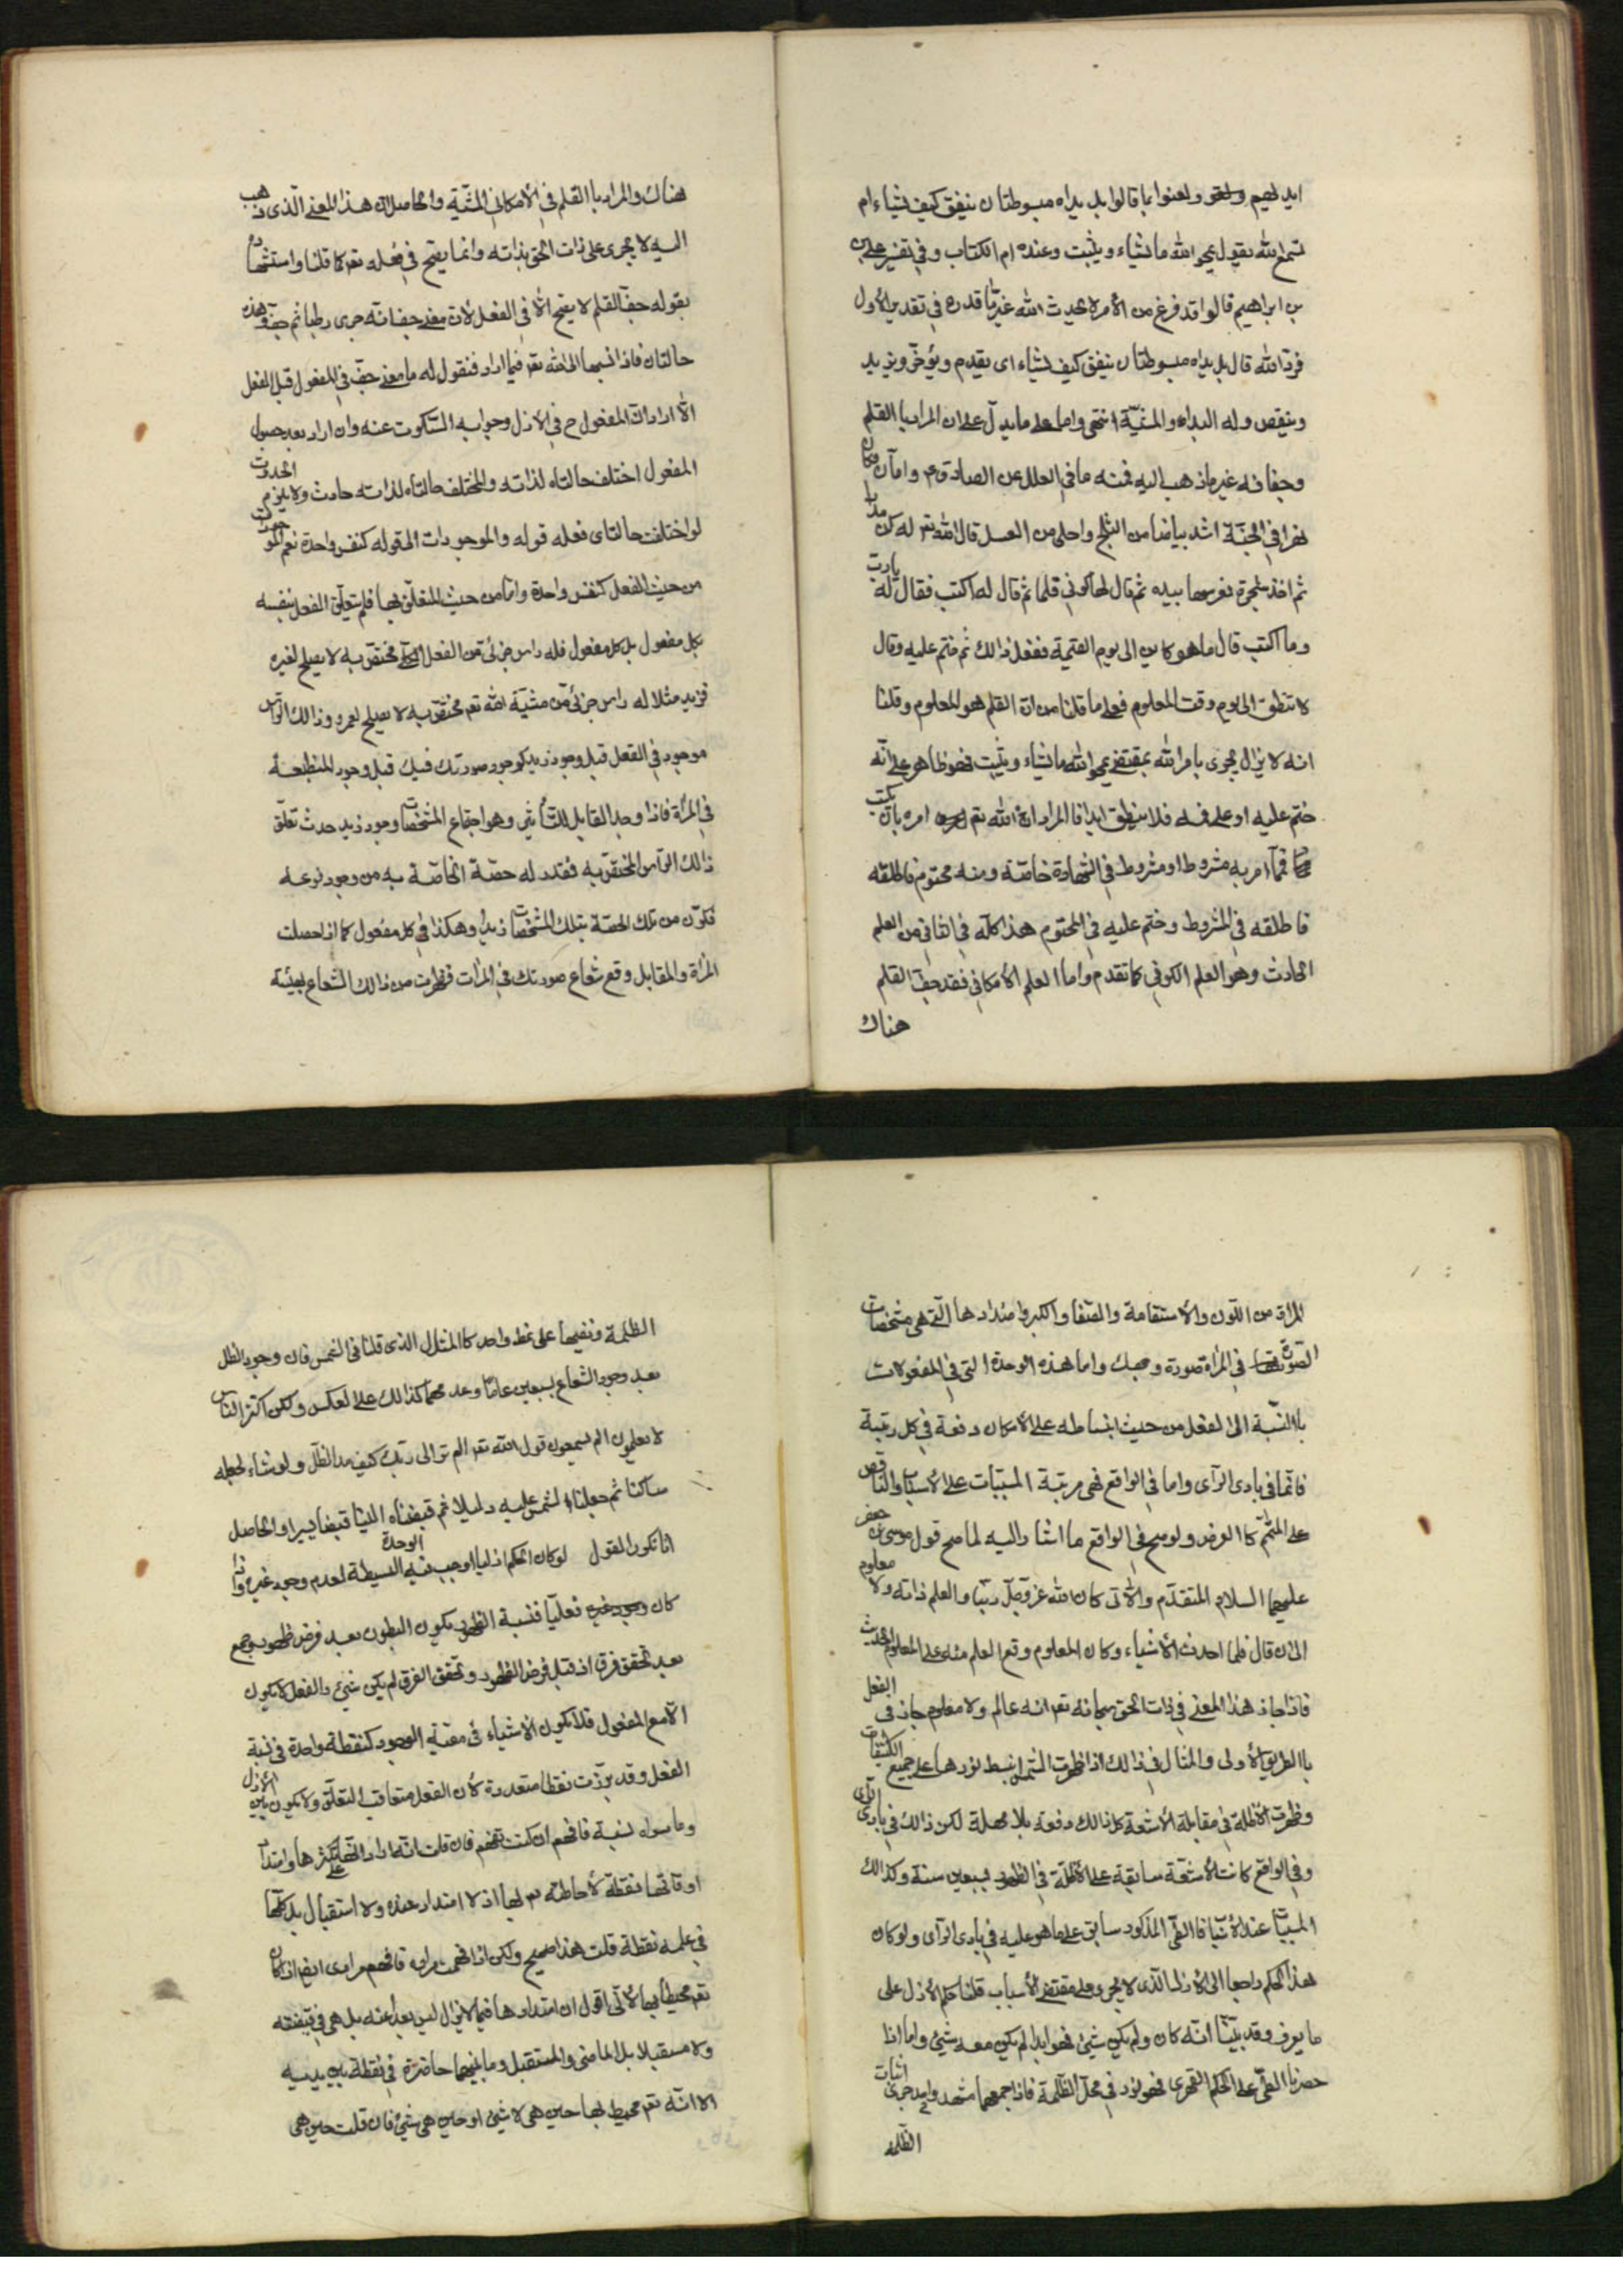 ايديهم ولعنوا بما قالوا بل يداه مبسوطتان ينفق كيف يشاء ام
تسمع الله يقول يمحو الله ما يشاء ويثبت وعنده ام الكتاب وفي تفسير علي
بن ابراهيم قالوا قد فرغ من الأمر لا يحدث الله غير ما قدره في تقدير الأول
فرد الله قال بل يداه مبسوطتان ينفق كيف يشاء اى يقدم ويؤخر ويزيد
وينقص وله البداء والمشيّة انتهى واما ما يدل على ان المراد با القلم
وجفافه غير ما ذهب اليه فمنه ما في العلل عن الصادق ع واما ن فكان
نهرا في الجنة اشد بياضا من الثلج واحلى من العسل قال الله تعر له كن مدادا
ثم اخذ شجرة فغرسها بيده ثم قال لها كوني قلما ثم قال له اكتب فقال له يارب
وما اكتب قال ما هو كاين الى يوم القيمة ففعل ذالك ثم ختم عليه وقال
لا تنطق الى يوم وقت المعلوم فعلى ما قلنا من ان القلم هو المعلوم وقلنا
انه لا يزال يجرى بامر الله بمقتضى يمحو الله ما يشاء ويثبت فهو ظاهر على انّه
ختم عليه او على فمه فلا ينطق ابدا فا المراد ان الله تعر امره بان يكتب
فما امر به مشروطا ومشروط في الشهادة خاصّة ومنه محتوم فاطلقه
فاطلقه في المشروط وختم عليه في المحتوم هذا كله في الثاني من العلم
الحادث وهو العلم الكوني كما تقدم واما العلم الأمكاني فقد جفّ القلم
هناك
هناك والمراد با القلم في الأمكاني المشيّة والحاصل ان هذا المعنى الّذى ذهب
اليه لا يجرى على ذات الحق بذاته وانما يصح في فعله تعر كما قلنا واستشهاده
بقوله جفّ القلم لا يصح الّا في الفعل لان معنى جف انه جرى رطبا ثم جفّ وهذه
حالتان فاذا نسبها الى الله تعر فيما اراد فنقول له ما معنى جفّ في المفعول قبل الفعل
الّا اراد ان المفعول ح في الازل وجوابه السّكوت عنه وان اراد بعد حصول
المفعول اختلف حالتاه لذاته والمختلف حالتاه لذاته حادث ولا يلزم الحدوث
لو اختلف حالتاى فعله قوله والموجودات المقوله كنفس واحدة نعم الموجودات
من حيث الفعل كنفس واحدة واما من حيث المتعلّق بها فلم يتعلّق الفعل بنفسه
بكل مفعول بل كل مفعول فله راس جزئى من الفعل مختصّ به لا يصلح لغيره
فزيد مثلا له راس جزئى من مشيّة الله تعر مختصّ به لا يصلح لعمرو وذالك الرّاس
موجود في الفعل قبل وجود زيد كوجود صورتك فيك قبل وجود المنطبعة
في المرأة فاذا وجد القابل للتأثير وهو اجتماع المشخصات وجود زيد حدث تعلّق
ذالك الرّاس المختصّ به فقدر له حصّة الخاصّة به من وجود نوعه
فكوّن من تلك الحصّة بتلك المشخصات زيدا وهكذا في كل مفعول كما اذا حصلت
المرأة والمقابل وقع شعاع صورتك في المرأت فظهرت من ذالك الشّعاع بهيئة
المرأة من اللّون والأستقامة والصّفا والكبر واضدادها الّتى هى مشخصات
الصّورة في المرأة صورة وجهك واما هذه الوحدة الّتى في المفعولات
با النّسبة الى الفعل من حيث انبساطه على الأمكان دفعة في كل رتبة
فانما في بادى الرّأى واما في الواقع فهى مرتبة المسبّبات على الأسباب والنّاقص
على المتمّم كا العرض ولو صح في الواقع ما اشار اليه لما صح قول موسى بن جعفر
عليهما السلام المتقدّم والآتى كان الله عزّ وجلّ ربّنا والعلم ذاته ولا معلوم
الى ان قال فلما احدث الأشياء وكان المعلوم وقع العلم منه على المعلوم الحديث
فاذا جاز هذا المعنى في ذات الحق سبحانه تعر انه عالم ولا معلوم جاز في الفعل
با الطريق الأولى والمثال في ذالك اذا ظهرت الشّمس انبسط نورها على جميع الكثيفات
وظهرت الأظلة في مقابلة الأشعة كل ذالك دفعة بلا مهلة لكن ذالك في بادى الرّأى
وفي الواقع كانت الأشعّة سابقة على الأظلّة في الظهور بسبعين سنة وكذالك
المسببات عند الأسباب فا الفئ المذكور سابق على ما هو عليه في بادى الرّأى ولو كان
هذا الحكم راجعا الى الأزل الّذى لا يجرى على مقتضى الأسباب قلنا حكم الأزل على
ما يعرف وقد بيّنّا انّه كان ولم يكن شئ فهو ابدا لم يكن معه شئ واما اذا
حصرنا الفئ على الحكم القهرى فهو نور في محلّ الظّلمة فاذا جمعهما مشهد واحد جرى اثبات
الظّلمة
الظّلمة ونفيها على نمط واحد كا المثال الذى قلنا في الشمس فان وجود الظل
بعد وجود الشّعاع بسبعين عامًا وعدمهما كذالك على العكس ولكن اكثر النّاس
لا يعلمون الم يسمعوا قول الله تعر الم تر الى ربّك كيف مد الظّلّ ولو شاء لجعله
ساكنا ثم جعلنا الشمس عليه دليلا ثم قبضناه الينا قبضا يسيرا والحاصل
انا نكرر القول لو كان الحكم ازليا اوجب فيه الوحدة البسيطة لعدم وجود غيره وان
كان فعليّا فنسبة الظهور يكون البطون بعد فرض ظهور وجمع
بعد تحقق فرق اذ قبل فرض الظهور وتحقق الفرق لم يكن شئ والفعل لا يكون
الّا مع المفعول فلا يكون الأشياء في معيّة الوجود كنقطة واحدة في نسبة
الفعل وقد برزت نقطا متعددة لأن الفعل متعاقب التعلّق ولا يكون بين الأزل
وما سواه نسبة فافهم ان كنت تفهم فان قلت انّه اراد انها على كثرها وامتداد
اوقاتها نقطة لأحاطته تعر لها اذ لا امتداد عنده ولا استقبال بل كلّها
في علمه نقطة قلت هذا صحيح ولكن اذا فهمت مراده فافهم مرادى ايضا اذا كان
تعر محيطا بها لأنّى اقول ان امتدادها فيما لا يزال ليس بعيدا عنه بل هى في قبضته
ولا مستقبلا بل الماضى والمستقبل وما بينهما حاضرة في نقطة بين يديه
الا انّه تعر محيط بها حين هى لا شئ او حين هى شئ فان قلت حين هى